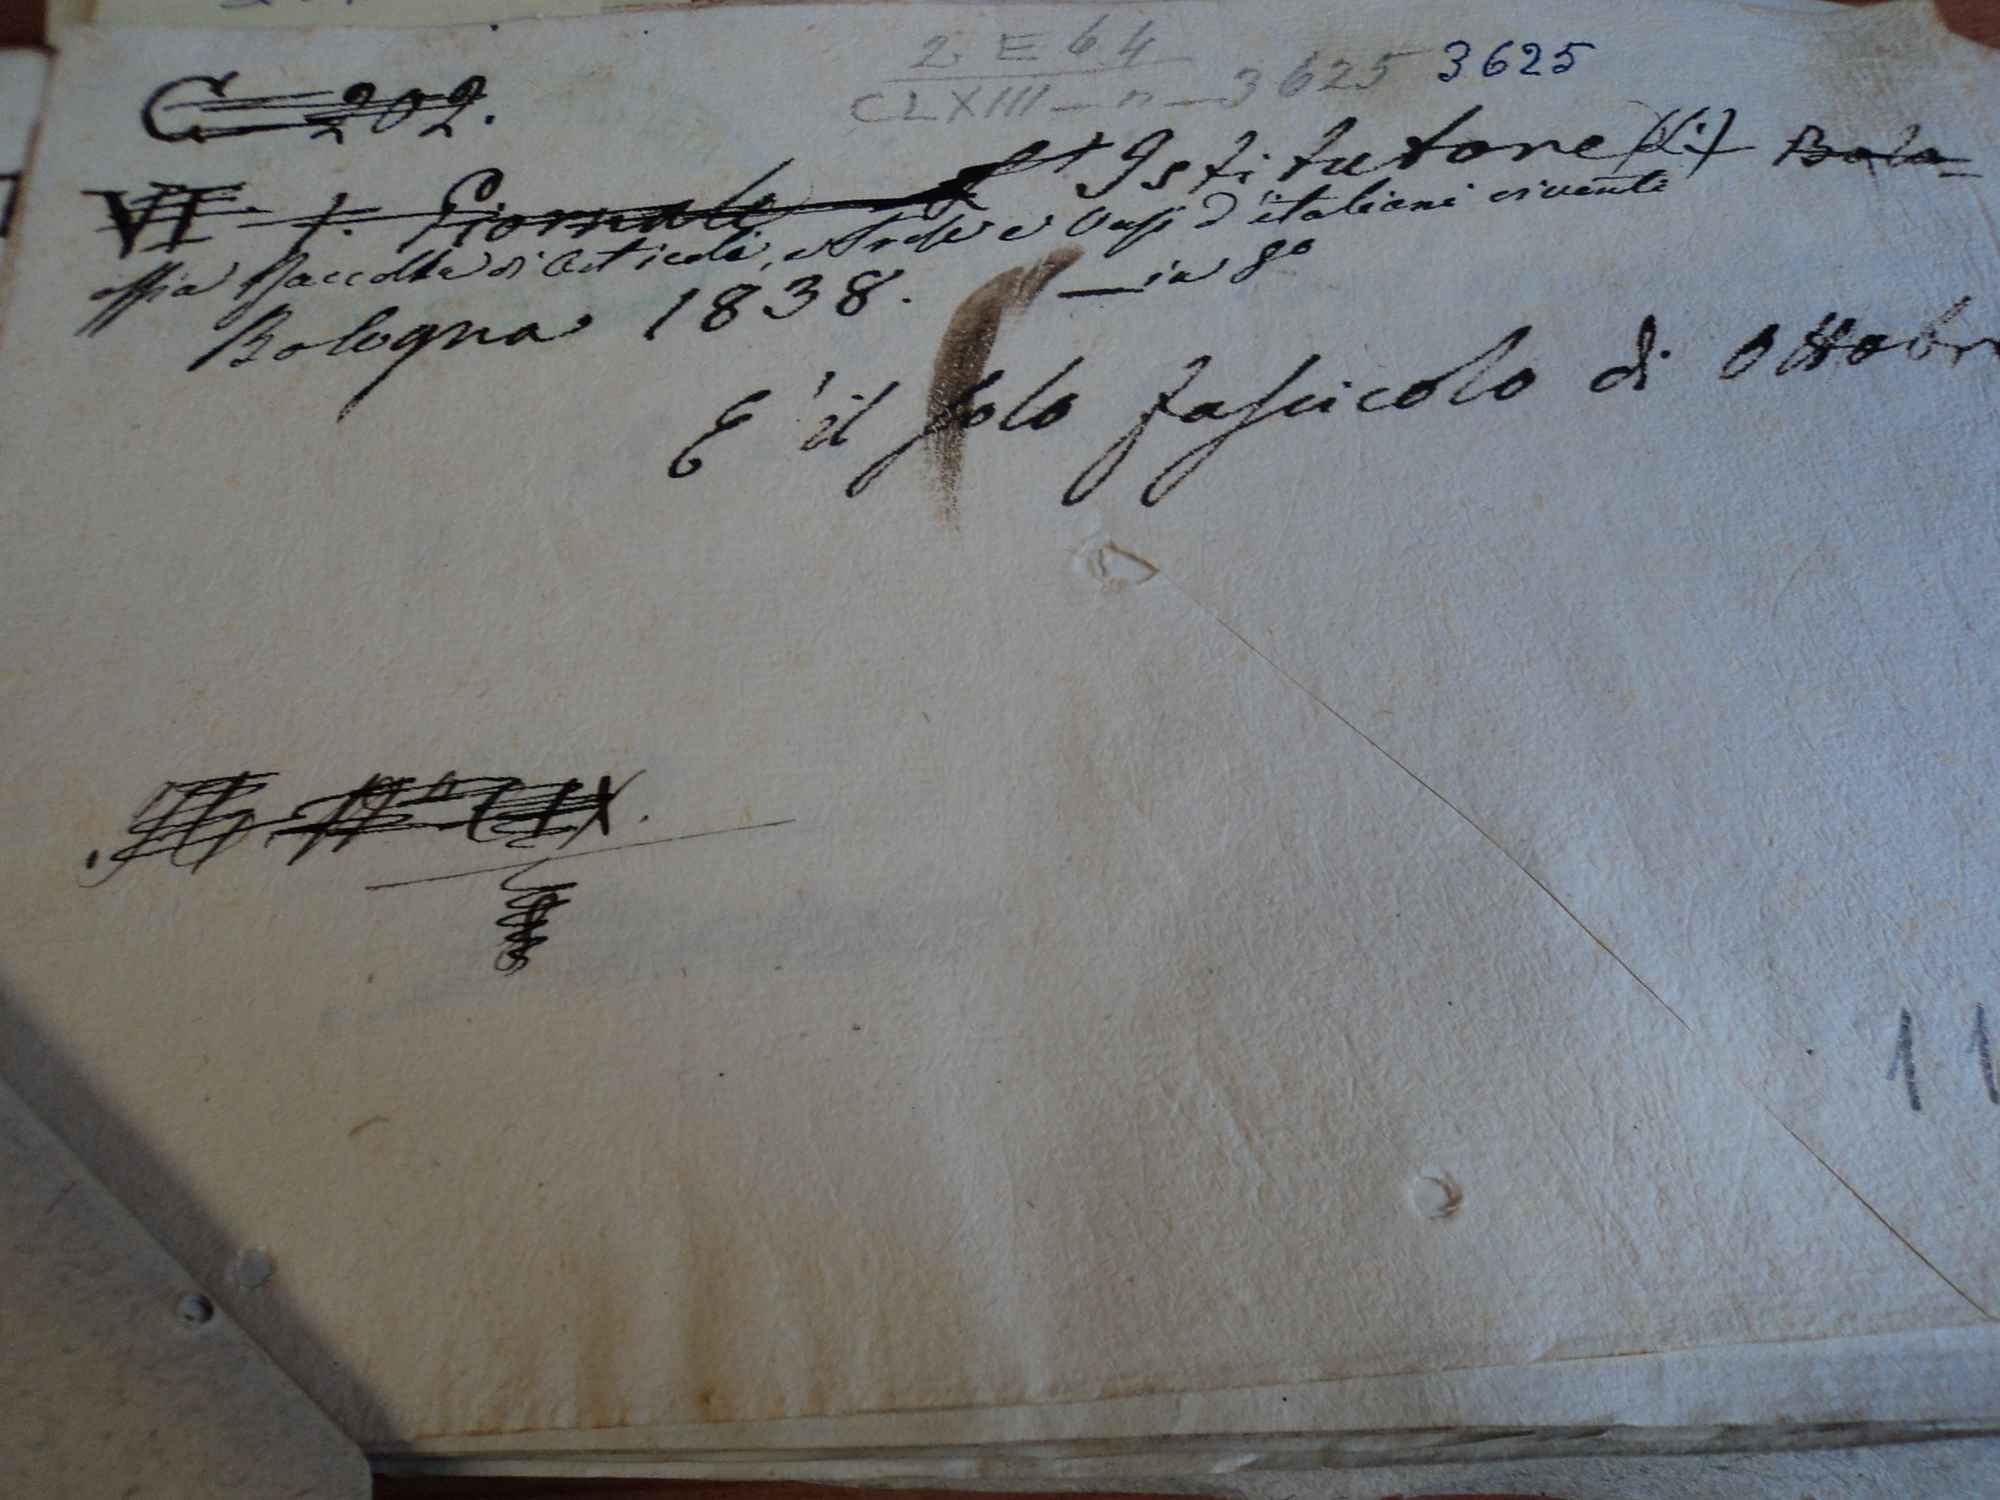 2. E 64
CLXIII - n - 3625 3625
C 202.
VI. 1. Giornale L' Istitutore (di) Bolo-
ossia Raccolta di Articoli, e Prose e Versi d'italiani viventi
Bologna 1838. — in 8º
E' il solo fascicolo di Ottobr
11